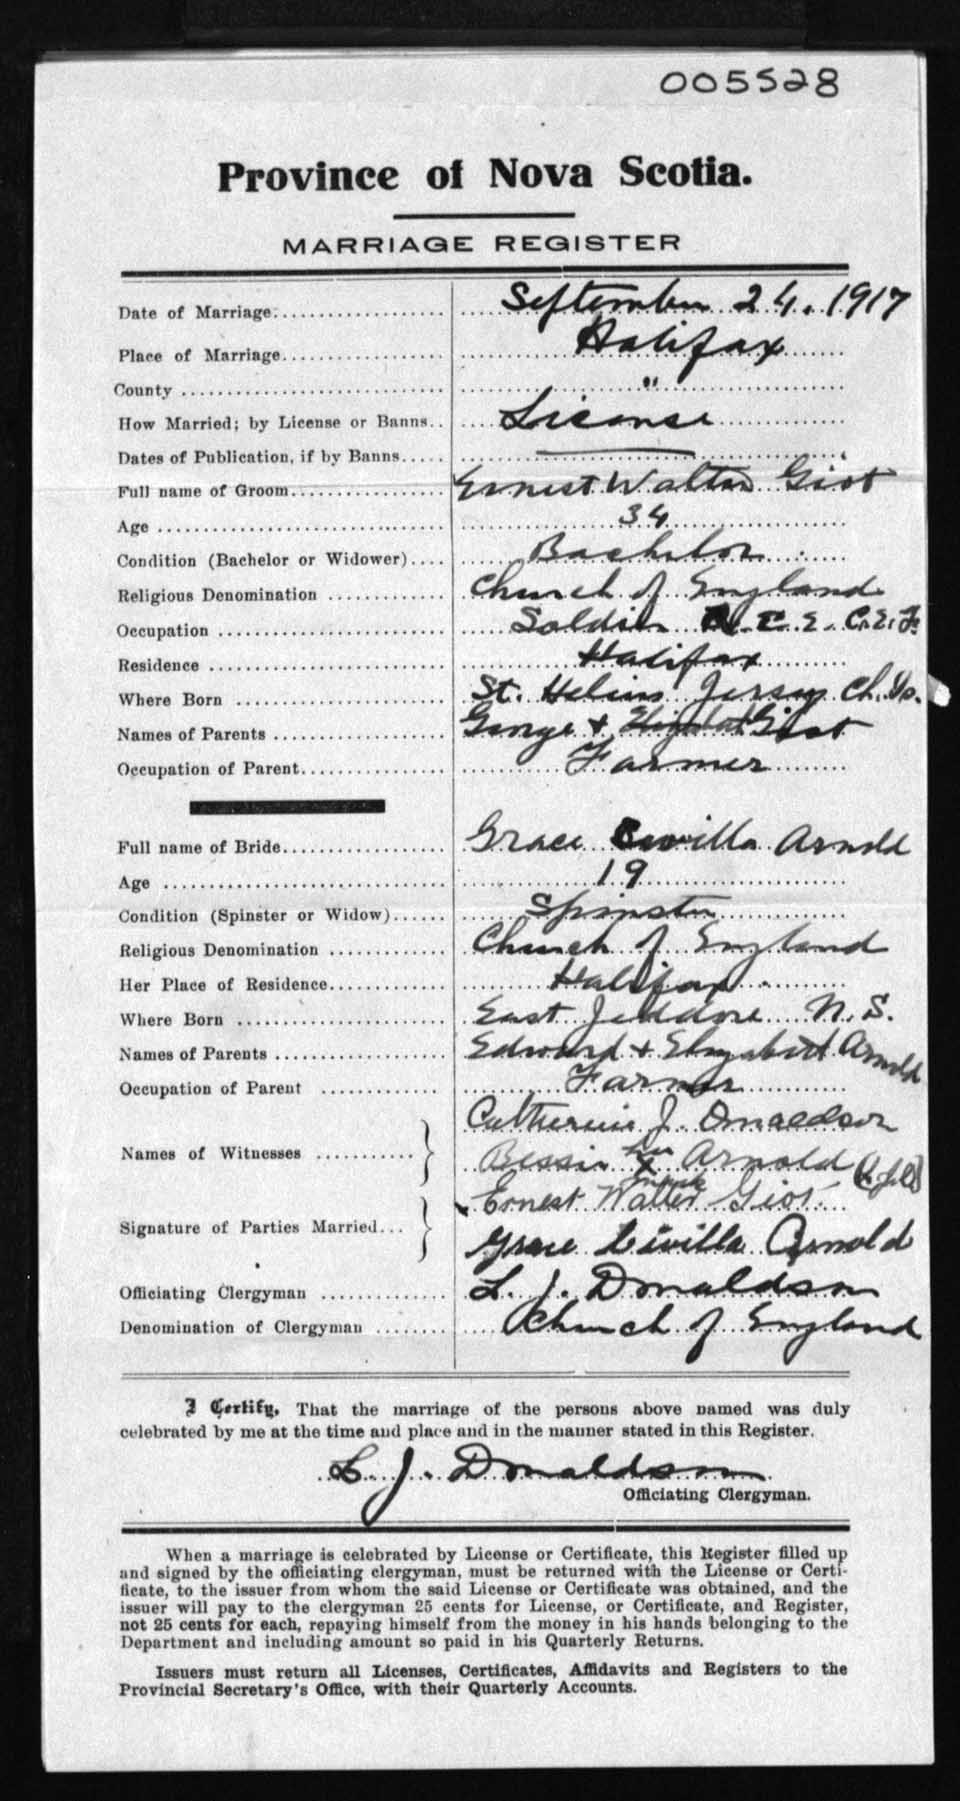 005528
Province of Nova Scotia.
MARRIAGE REGISTER
Date of Marriage. September 24. 1917
Place of Marriage. Halifax
County "
How Married; by License or Banns. License
Dates of Publication, if by Banns.
Full name of Groom. Ernest Walter Giot
Age 34
Condition (Bachelor or Widower). Bachelor
Religious Denomination Church of England
Occupation Soldier C. E. C.E.F.
Residence Halifax
Where Born St. Heliers Jersey Ch. Is.
Names of Parents George + Elizabet Giot
Occupation of Parent. Farmer
Full name of Bride. Grace Civilla Arnold
Age 19
Condition (Spinster or Widow). Spinster
Religious Denomination Church of England
Her Place of Residence. Halifax
Where Born East Jeddore N. S.
Names of Parents Edward + Elizabeth Arnold
Occupation of Parent Farmer
Names of Witnesses Catherine J. Donaldson
Bessie her X mark Arnold
Signature of Parties Married. Ernest Walter Giot.
Grace Civilla Arnold
Officiating Clergyman L. J. Donaldson
Denomination of Clergyman Church of England
I Certify, That the marriage of the persons above named was duly
celebrated by me at the time and place and in the manner stated in this Register.
L. J. Donaldson
Officiating Clergyman.
When a marriage is celebrated by License or Certificate, this Register filled up
and signed by the officiating clergyman, must be returned with the License or Certi-
ficate, to the issuer from whom the said License or Certificate was obtained, and the
issuer will pay to the clergyman 25 cents for License, or Certificate, and Register,
not 25 cents for each, repaying himself from the money in his hands belonging to the
Department and including amount so paid in his Quarterly Returns.
Issuers must return all Licenses, Certificates, Affidavits and Registers to the
Provincial Secretary's Office, with their Quarterly Accounts.